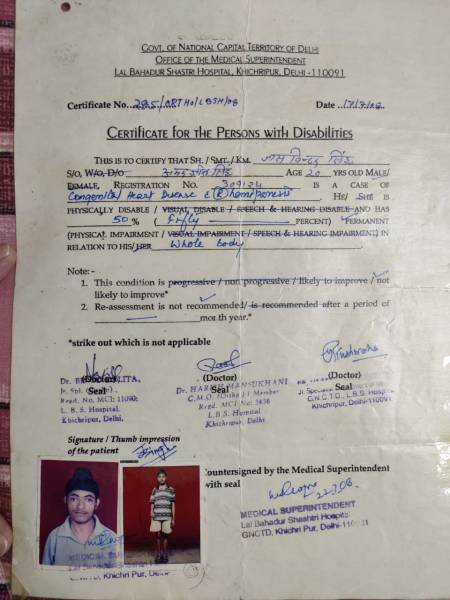 GOVT. OF NATIONAL CAPITAL TERRITORY OF DELHI
OFFICE OF THE MEDICAL SUPERINTENDENT
LAL BAHADUR SHASTRI HOSPITAL, KHICHRIPUR, DELHI -110091
Certificate No. 285/ORTHO/LBSH/08 Date 17/7/08
CERTIFICATE FOR THE PERSONS WITH DISABILITIES
THIS IS TO CERTIFY THAT SH. / SMT. / KM. सिंह
S/O, W/O, D/O सिंह AGE 20 YRS OLD MALE/
FEMALE, REGISTRATION NO. 309124 IS A CASE OF
Congenital Heart Disease c (R) hemiparesis. HE/ SHE IS
PHYSICALLY DISABLE / VISUAL DISABLE / SPEECH & HEARING DISABLE AND HAS
50 % Fifty PERCENT) PERMANENT
(PHYSICAL IMPAIRMENT / VISUAL IMPAIRMENT / SPEECH & HEARING IMPAIRMENT) IN
RELATION TO HIS/HER Whole body
Note: -
1. This condition is progressive / non progressive / likely to improve / not
likely to improve*
2. Re-assessment is not recommended/ is recommended after a period of
month year.*
*strike out which is not applicable
(Doctor) (Doctor) (Doctor)
Seal Seal Seal
Dr.
Regd. No. MCI: 11090;
L. B. S. Hospital.
Khichripur, Delhi.
Dr. HARISH MANSUKHANI
C.M.O. Member
Regd. MCI No. 5436
L.B.S. Hospital
Khichripur, Delhi
Jr. Specialist
G.N.C.T.D., L.B.S. Hospital
Khichripur, Delhi-110091
Signature / Thumb impression
of the patient
Countersigned by the Medical Superintendent
with seal
MEDICAL SUPERINTENDENT
Lal Bahadur Shashtri Hospital
GNCTD, Khichri Pur, Delhi-110091
MEDICAL
Lal Bahadur Shashtri Hospital
GNCTD, Khichri Pur, Delhi